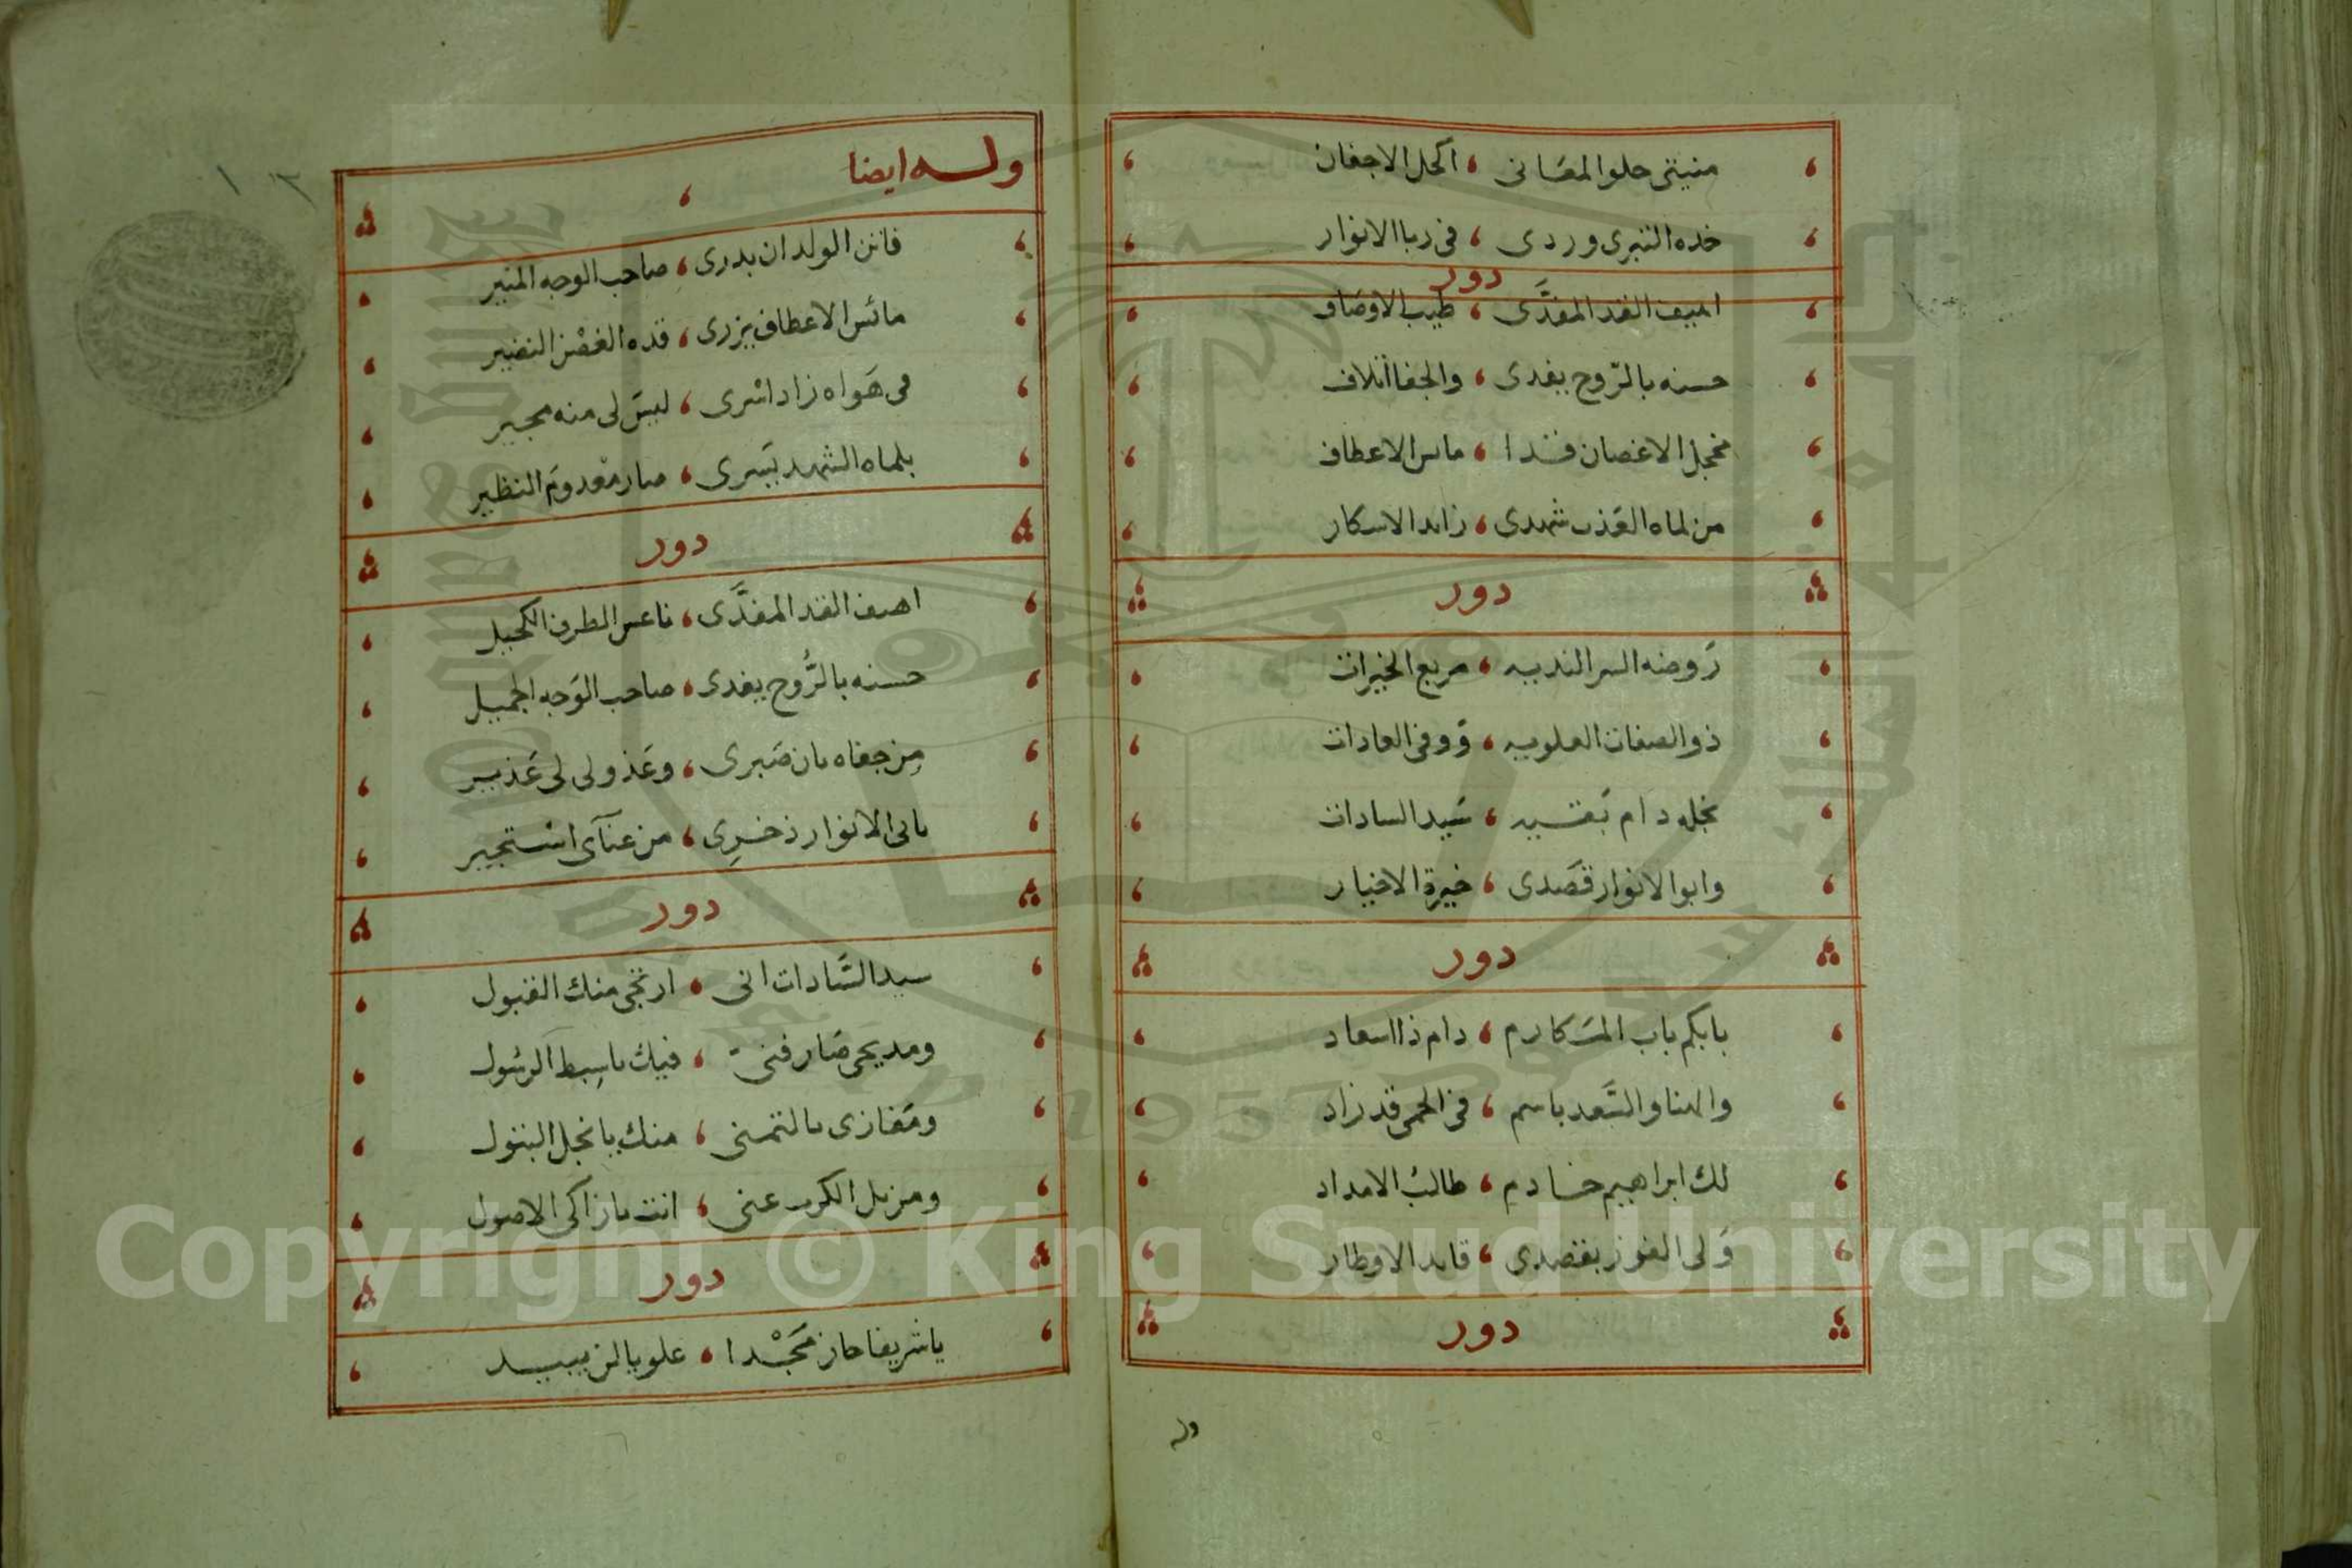 منيتى حلو المعَانى ، اكحل الاجفان
خده التبرى وردى ، فى ربا الانوار
دور
اهيف القد المفدَّى ، طيب الاوصَاف
حسنه بالرّوح يفدى ، والجفا اتلاف
مخجل الاغصان قدا ، مايس الاعطاف
من لماه العَذب شهدى ، زايد الاسكار
دور
رَوضه السر النديه ، مربع الخيرات
ذو الصفات العلويه ، وَوفى العادات
نجله دام بَقيه ، سَيد السادات
وابو الانوار قصَدى ، خيرة الاخيار
دور
بابكم باب المكارم ، دام ذا اسعاد
والهنا والسَّعد باسم ، فى الحمى قد زاد
لك ابراهيم خادم ، طالبُ الامداد
وَلى الفوز بقصدى ، قايد الاوطار
دور
وله
١٢
وله ايضا
فاتن الولدان بدرى ، صاحب الوجه المنير
مائس الاعطاف يزرى ، قده الغصْن النضير
فى هَواه زاد اسْرى ، ليسَ لى منه مجير
بلماه الشهد يَسرى ، صار معْدومَ النظير
دور
اهيف القد المفدَّى ، ناعس الطرف الكحيل
حسنه بالرُّوح يفدى ، صاحب الوَجه الجميل
مِن جفاه بان صَبرى ، وعَذولى لى عَذير
بابى الانوار ذخرِى ، من عنآى استجير
دور
سيد السَّادات انى ، ارتجى منك القبول
ومديحى صَار فنى ، فيك ياسِبط الرسُول
ومَفازى بالتمنى ، منك يا نجل البتول
ومزيل الكرب عنى ، انت يا زاكى الاصول
دور
يا شريفا حاز مَجْدا ، علويا لن يبيد
Copyright © King Saud University
1957